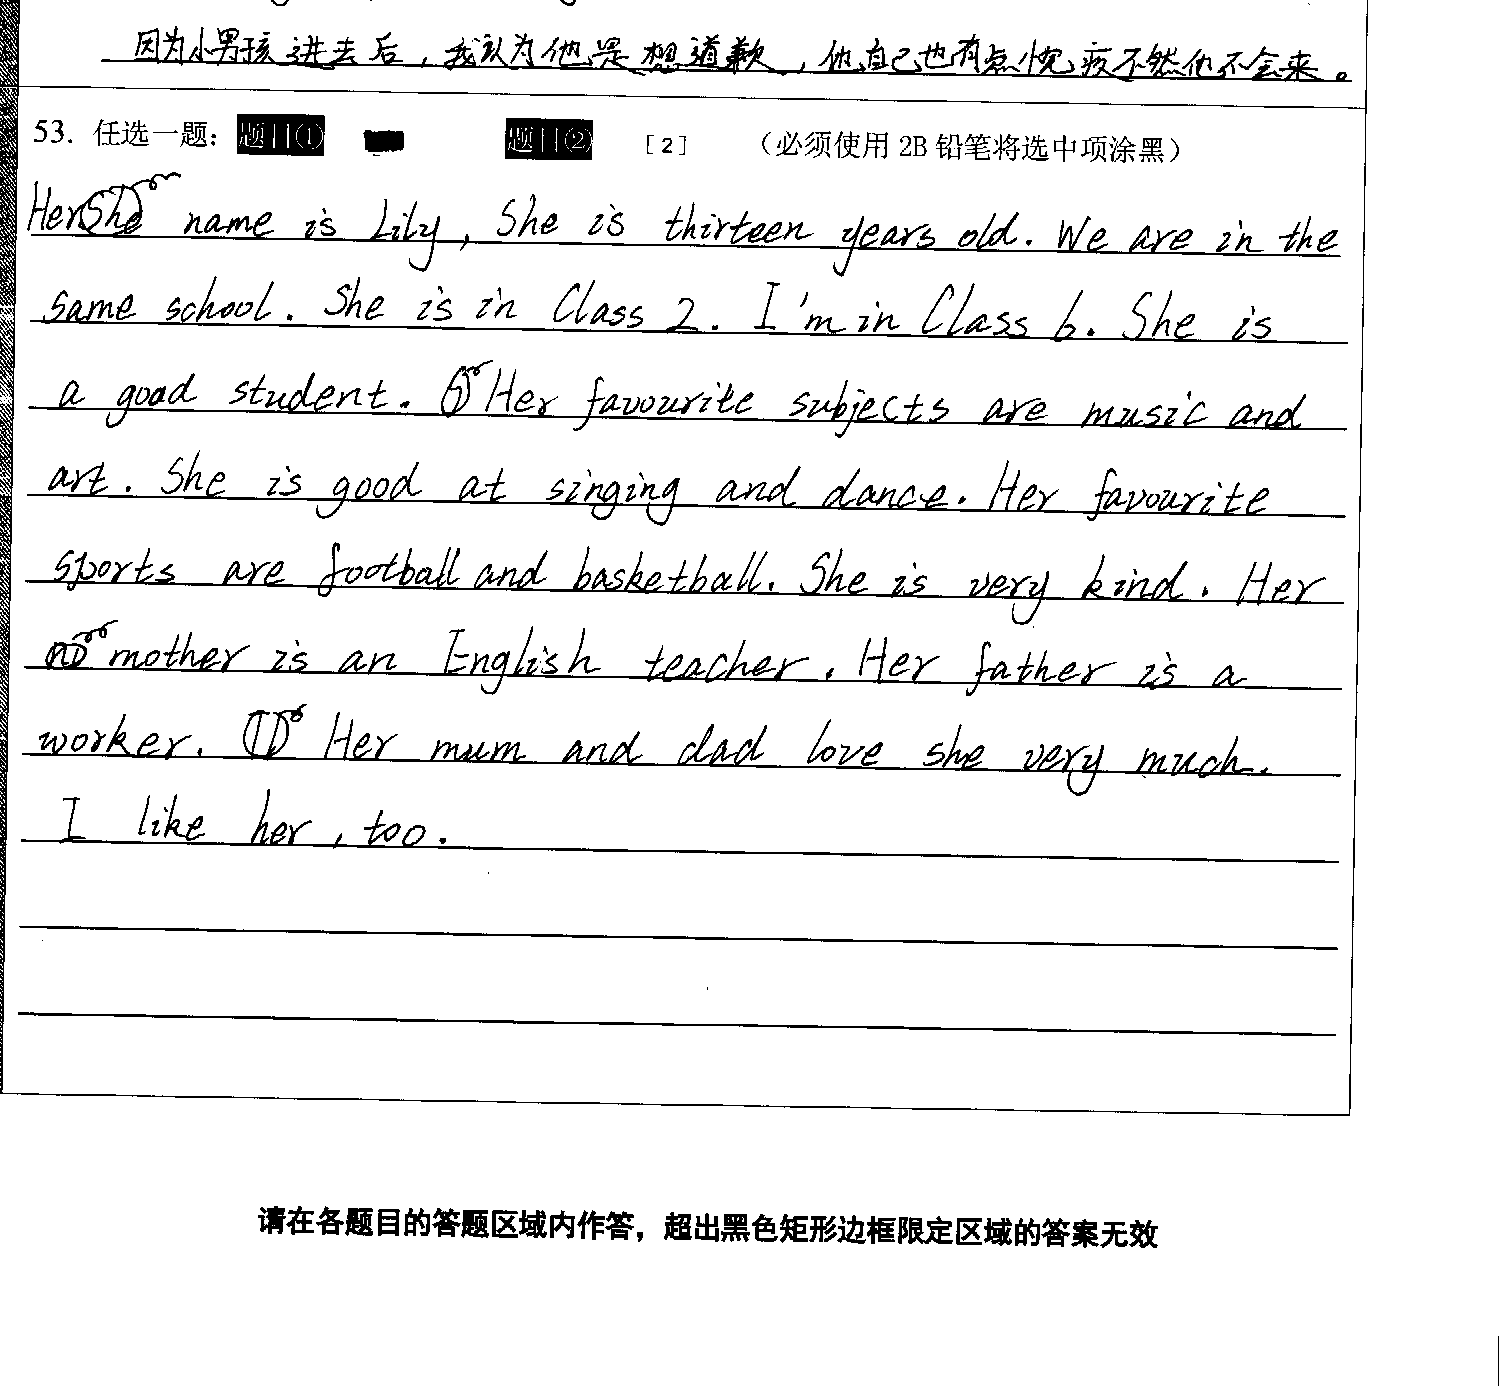 因为小男孩进去后，我认为他是想道歉，他自己也有点愧疚不然他不会来。
53. 任选一题：题目① 题目② [2] （必须使用2B铅笔将选中项涂黑）
Her name is Lily, She is thirteen years old. We are in the
same school. She is in Class 2. I'm in Class 6. She is
a good student. Her favourite subjects are music and
art. She is good at singing and dance. Her favourite
sports are football and basketball. She is very kind. Her
mother is an English teacher. Her father is a
worker. Her mum and dad love she very much.
I like her, too.
请在各题目的答题区域内作答，超出黑色矩形边框限定区域的答案无效